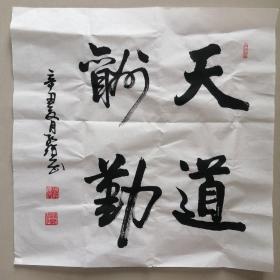 天道
酬勤
辛丑夏月